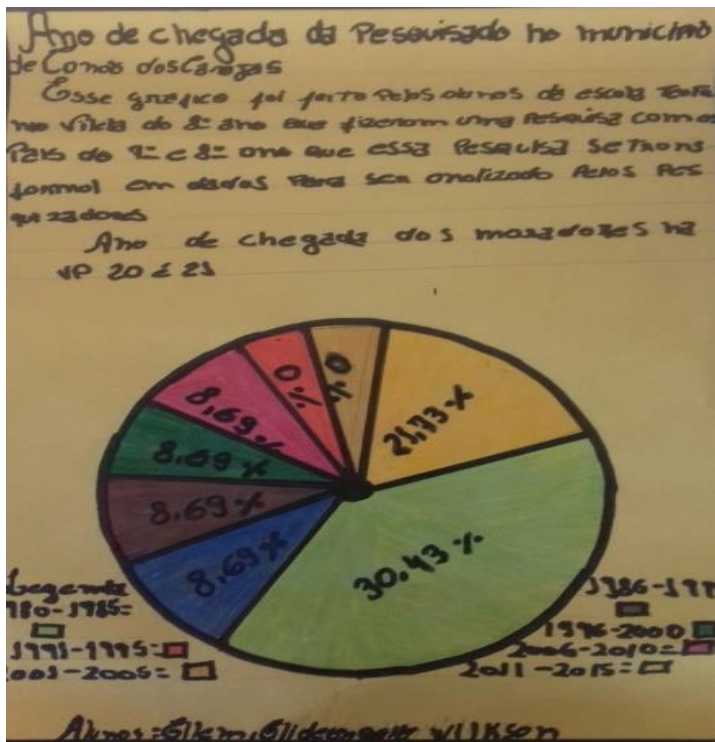 Ano de chegada da Pesquisado no município
de Canaã dos Carajás
Esse gráfico foi feito Pelos alunos da escola
no Vilela do 8º ano que fizeram uma Pesquisa com os
Pais do e 8º ano que essa Pesquisa se trans
formol em dados Para ser analizado Pelos Pes
qui zadores
Ano de chegada dos moradores na
VP 20 e 21
0%
0%
21,73%
8,69%
8.69%
8.69%
8,69%
30,43%
Legenda
980-1985=
1986-199
1996-2000
1991-1995=
2006-2010=
2001-2005=
2011-2015=
Alunos: Ellem, WIlKson